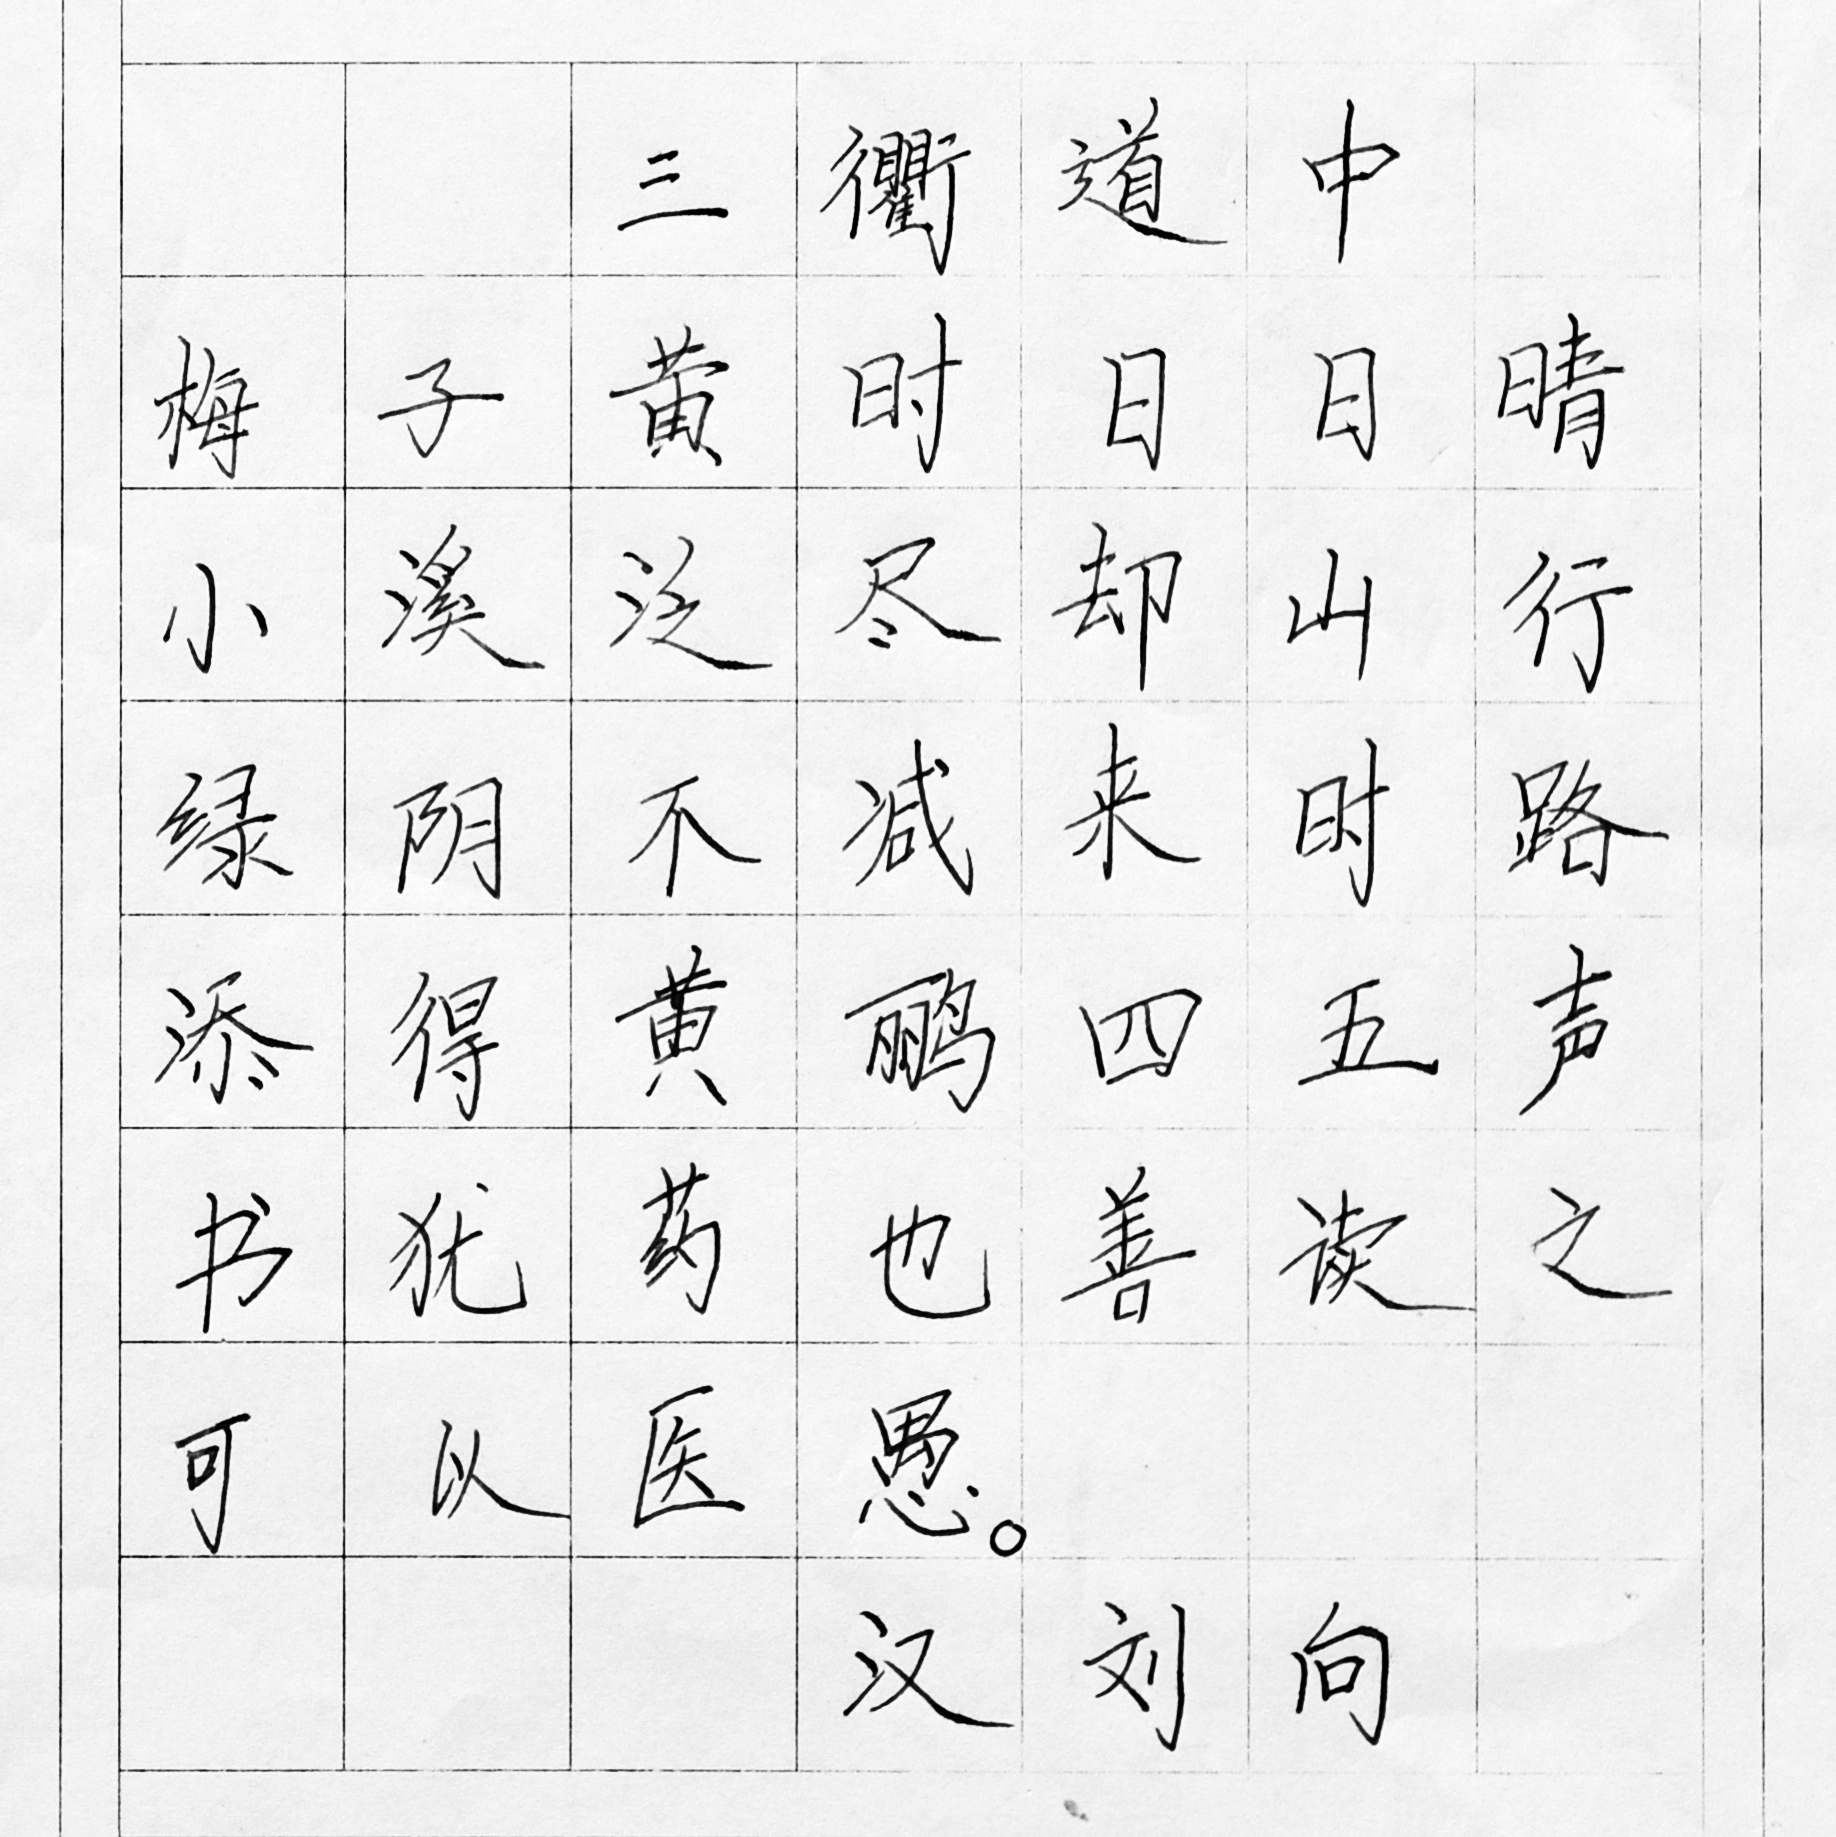 三衢道中
梅子黄时日日晴
小溪泛尽却山行
绿阴不减来时路
添得黄鹂四五声
书犹药也善读之
可以医愚。
汉刘向